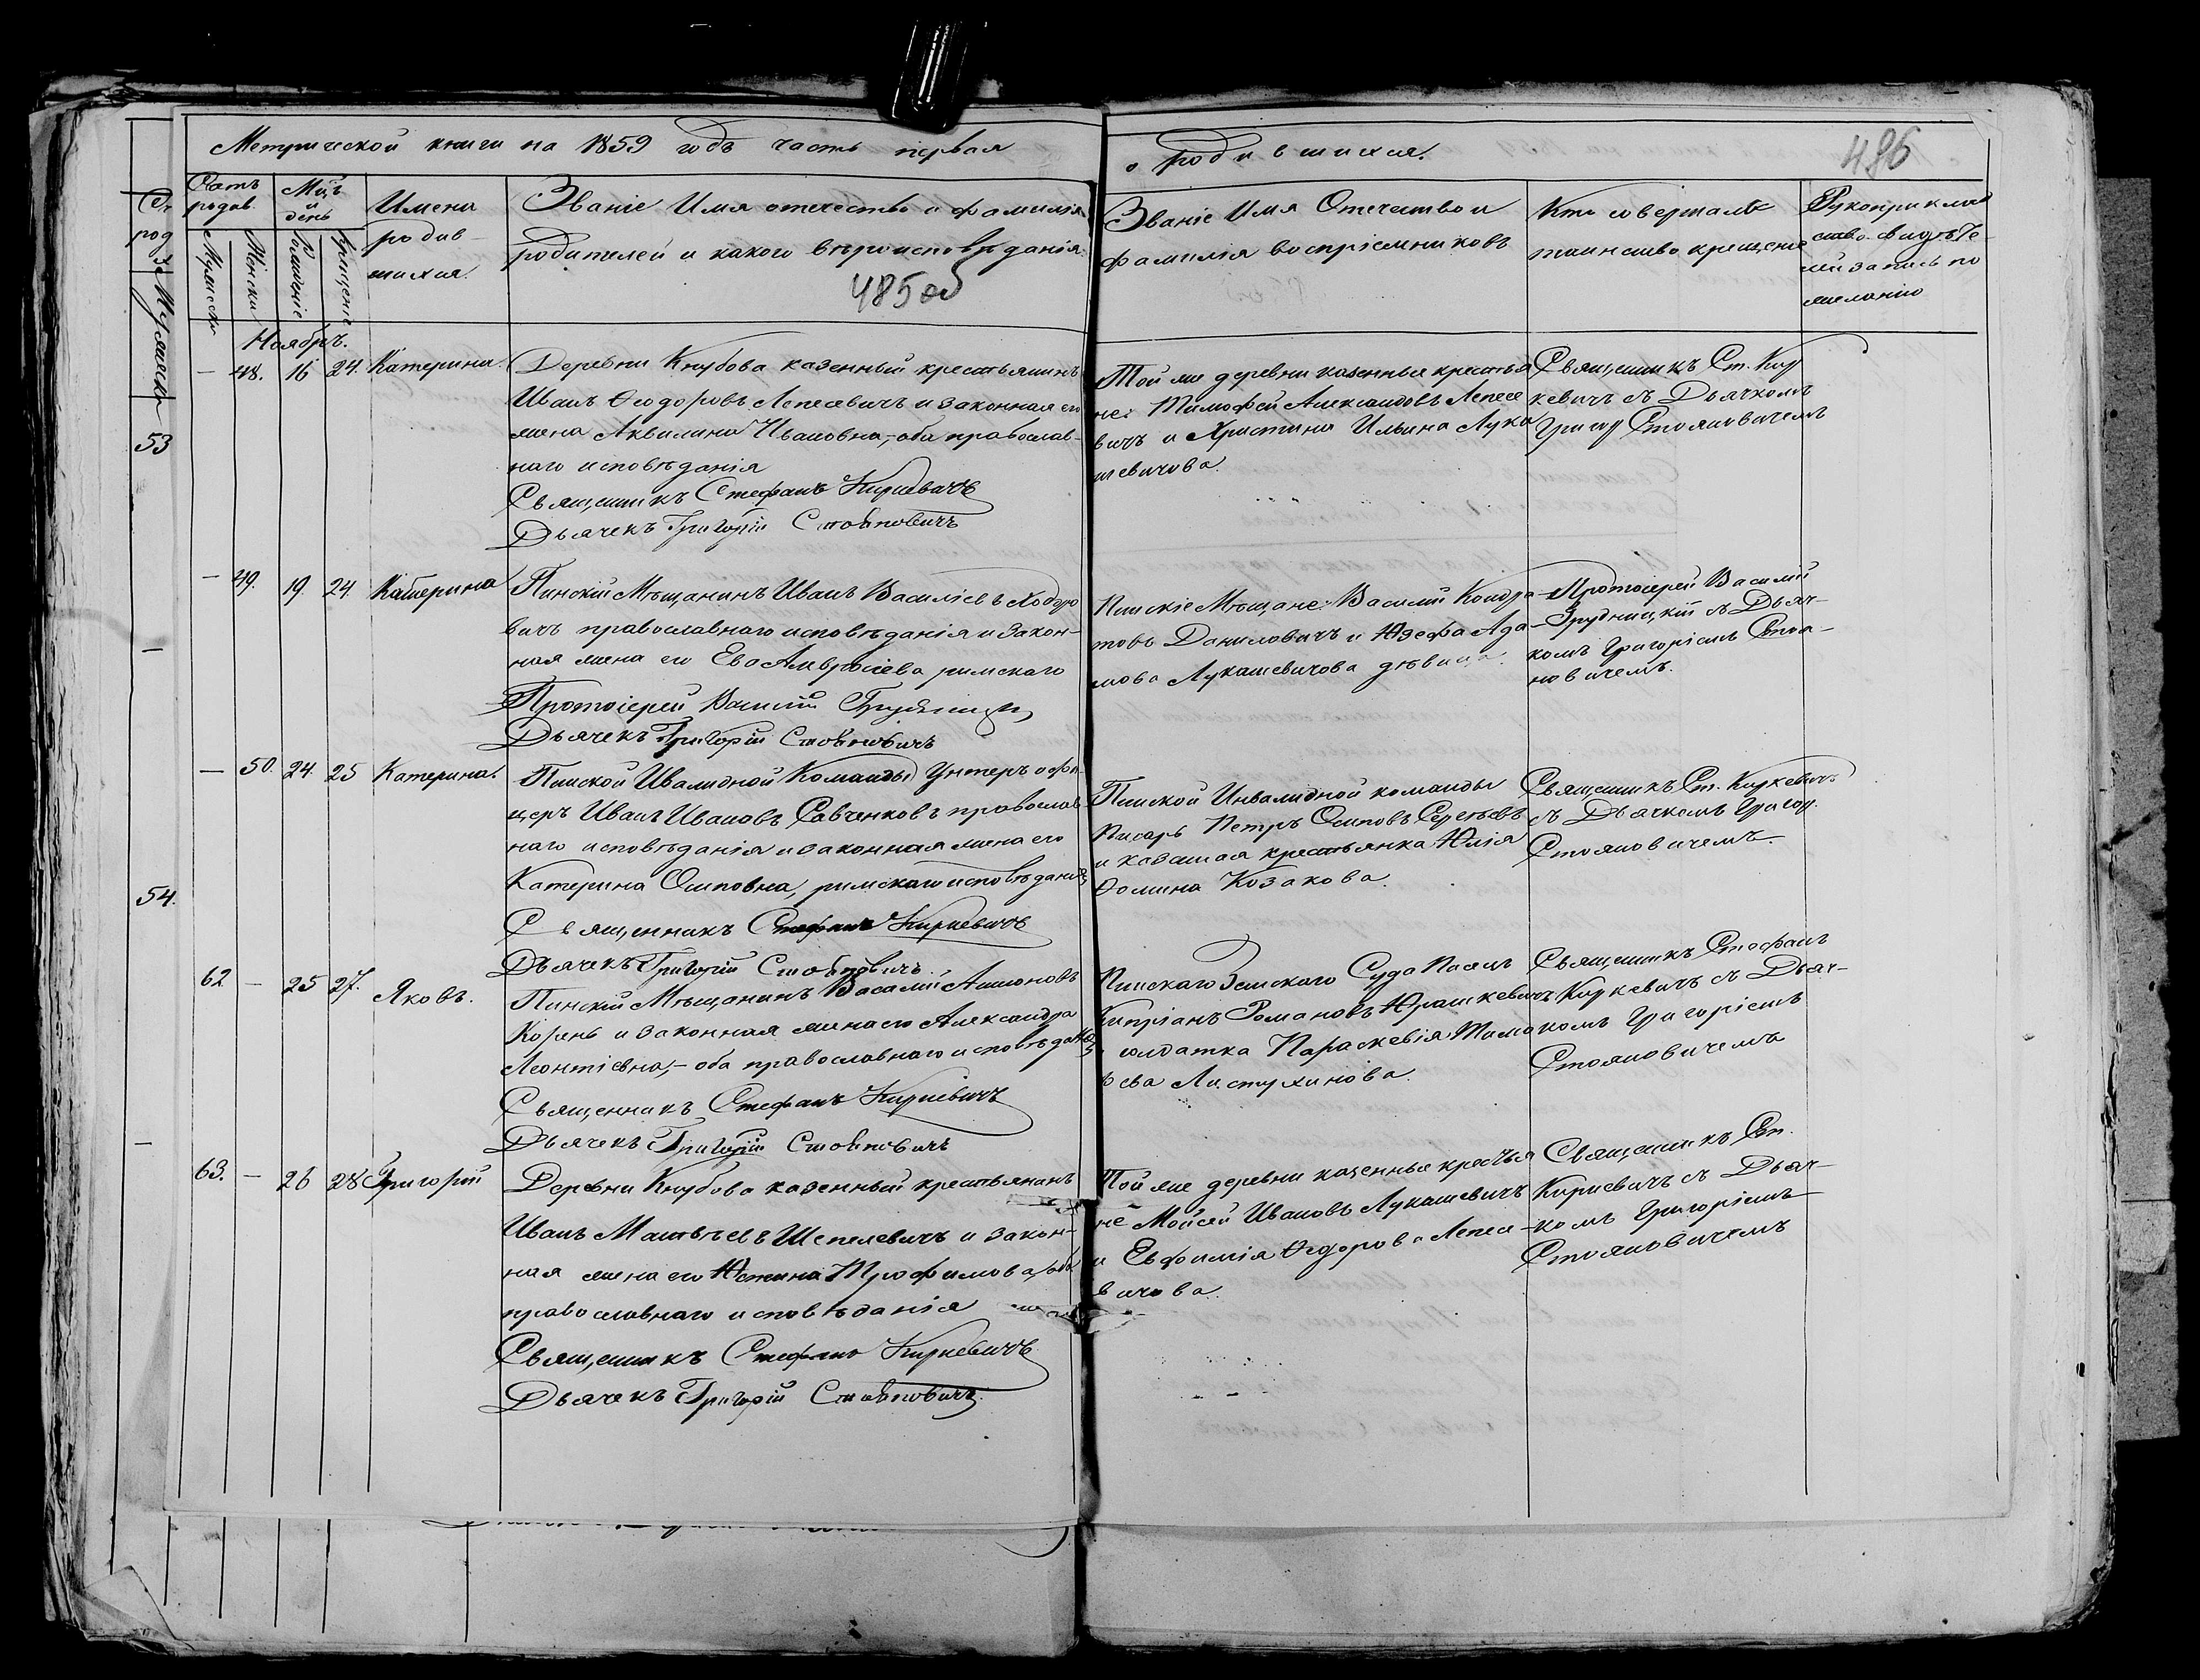 Метрической книги на 1859 годъ часть первая
о родившихся.
486
Счетъ родив.
Мужескъ
Женски
Мцъ и день
Рожденіе
Крещеніе
Имена
родив-
шихся.
Званіе Имя отечество и фамилія
родителей и какого вѣроисповѣданія.
485 об
Званіе Имя Отечество и
фамилія воспріемниковъ
Кто совершалъ
таинство крещенія
Рукоприклад
ство свидѣте
лей записи по
желанію
Ноябрь.
— 48. 16 24. Катерина.
Деревни Кнубова казенный крестьянинъ
Иванъ Ѳеодоровъ Лепесевичъ и законная его
жена Аквилина Ивановна, оба православ-
наго исповѣданія
Священникъ Стефанъ Киркевичъ
Дьячекъ Григорій Стояновичъ
Той же деревни казенные крестья
не: Тимофей Александовъ Лепесе
вичъ и Христина Ильина Лука
шевичова.
Священникъ Ст. Кир
кевичъ съ Дьячкомъ
Григор Стояновичемъ
— 49. 19. 24. Катерина
Пинскій Мѣщанинъ Иванъ Василіевъ Ходоро
вичъ православнаго исповѣданія и закон-
ная жена его Ева Амвросіева римскаго
Протоіерей Василій Грудницкій
Дьячекъ Григорій Стояновичъ
Пинскіе Мѣщане: Василій Кондра-
товъ Даниловичъ и Юзефа Ада-
мова Лукашевичова дѣвица.
Протоіерей Василій
Грудницкій съ Дьяч-
комъ Григоріемъ Стоя-
новичемъ.
— 50. 24. 25 Катерина.
Пинской Ивалидной Команды Унтеръ офи
церъ Иванъ Ивановъ Савченковъ православ
наго исповѣданія и законная жена его
Катерина Осиповна, римскаго исповѣданія
Священникъ Стефанъ Киркевичъ
Дьячекъ Григорій Стояновичъ.
Пинской Инвалидной команды
Писарь Петръ Осиповъ Сергѣевъ
и казенная крестьянка Юлія
Ѳомина Козакова.
Священникъ Ст. Киркевичъ
съ Дьячкомъ Григор.
Стояновичемъ.
62 — 25 27. Яковъ.
Пинскій Мѣщанинъ Василій Антоновъ
Корень и законная жена его Александра
Леонтіевна,- оба православнаго исповѣданія
Священникъ Стефанъ Киркевичъ
Дьячекъ Григорій Стояновичъ
Пинскаго Земскаго Суда
Кипріанъ Романовъ Юрашкевичъ
солдатка Параскевія Тимо
ѳеева Листухинова.
Священникъ Стефанъ
Киркевичъ съ Дьяч-
комъ Григоріемъ
Стояновичемъ
63. — 26 28 Григорій
Деревни Кнубова казенный крестьянинъ
Иванъ Матвѣевъ Шепелевичъ и закон-
ная жена его Юстина Трофимова, оба
православнаго исповѣданія
Священникъ Стефанъ Киркевичъ
Дьячекъ Григорій Стояновичъ.
Той же деревни казенные крестья
не Мойсей Ивановъ Лукашевичъ
и Евфимія Ѳедорова Лепесе-
вичова.
Священникъ Ст.
Киркевичъ съ Дьяч-
комъ Григоріемъ
Стояновичемъ
53
54.